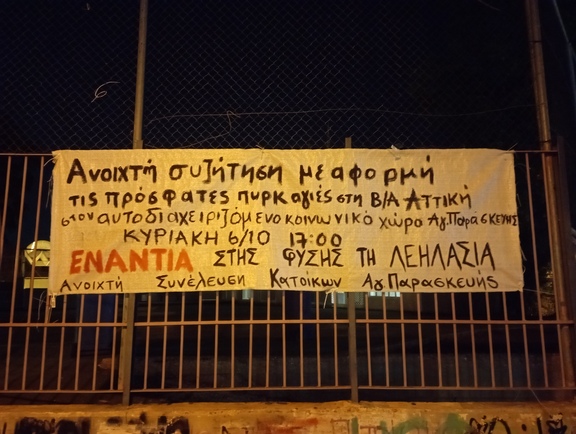 Ανοιχτή συζήτηση με αφορμή
τις πρόσφατες πυρκαγιές στη Β/Α Αττική
στον αυτοδιαχειριζόμενο κοινωνικό χώρο Αγ. Παρασκευής
ΚΥΡΙΑΚΗ 6/10 17:00
ΕΝΑΝΤΙΑ ΣΤΗΣ ΦΥΣΗΣ ΤΗ ΛΕΗΛΑΣΙΑ
Ανοιχτή Συνέλευση Κατοίκων Αγ. Παρασκευής